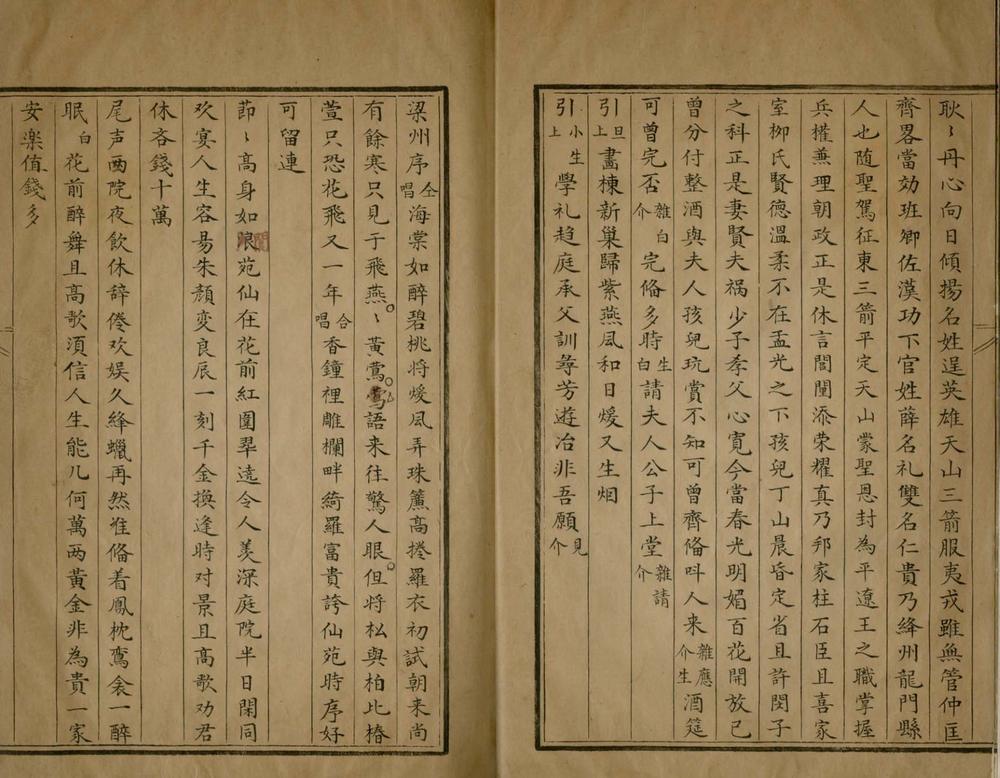 耿〻丹心向日傾揚名姓逞英雄天山三箭服夷戎雖無管仲匡
齊畧當効班卿佐漢功下官姓薛名礼雙名仁貴乃絳州龍門縣
人也随聖駕征東三箭平定天山蒙聖恩封為平遼王之職掌握
兵權兼理朝政正是休言閥閱添荣耀真乃邦家柱石臣且喜家
室柳氏賢德溫柔不在孟光之下孩兒丁山晨昏定省且許閔子
之科正是妻賢夫禍少子孝父心寬今當春光明媚百花開放已
曾分付整酒與夫人孩兒玩賞不知可曾齊俻呌人来介雜應生酒筵
可曾完否介雜白完俻多時生白請夫人公子上堂雜請介
引旦上畵棟新巢歸紫燕凮和日煖又生烟
引小生上學礼趋庭承父訓尋芳遊冶非吾願見介
梁州序仝唱海棠如醉碧桃将煖凮弄珠簾高捲羅衣初試朝来尚
有餘寒只見于飛燕〻黄鶯鶯語来往驚人眼但将松與柏比椿
萱只恐花飛又一年合唱香鐘裡雕欄畔綺羅富貴誇仙苑時序好
可留連
莭〻高身如閬苑仙在花前紅圍翠遶令人羙深庭院半日閑同
欢宴人生容昜朱顏变良辰一刻千金換逢時对景且高歌劝君
休吝錢十萬
尾声两院夜飲休辞倦欢娱久絳蠟再然准俻着鳳枕鸾衾一醉
眠白花前醉舞且高歌湏信人生能几何萬两黄金非為貴一家
安楽值錢多